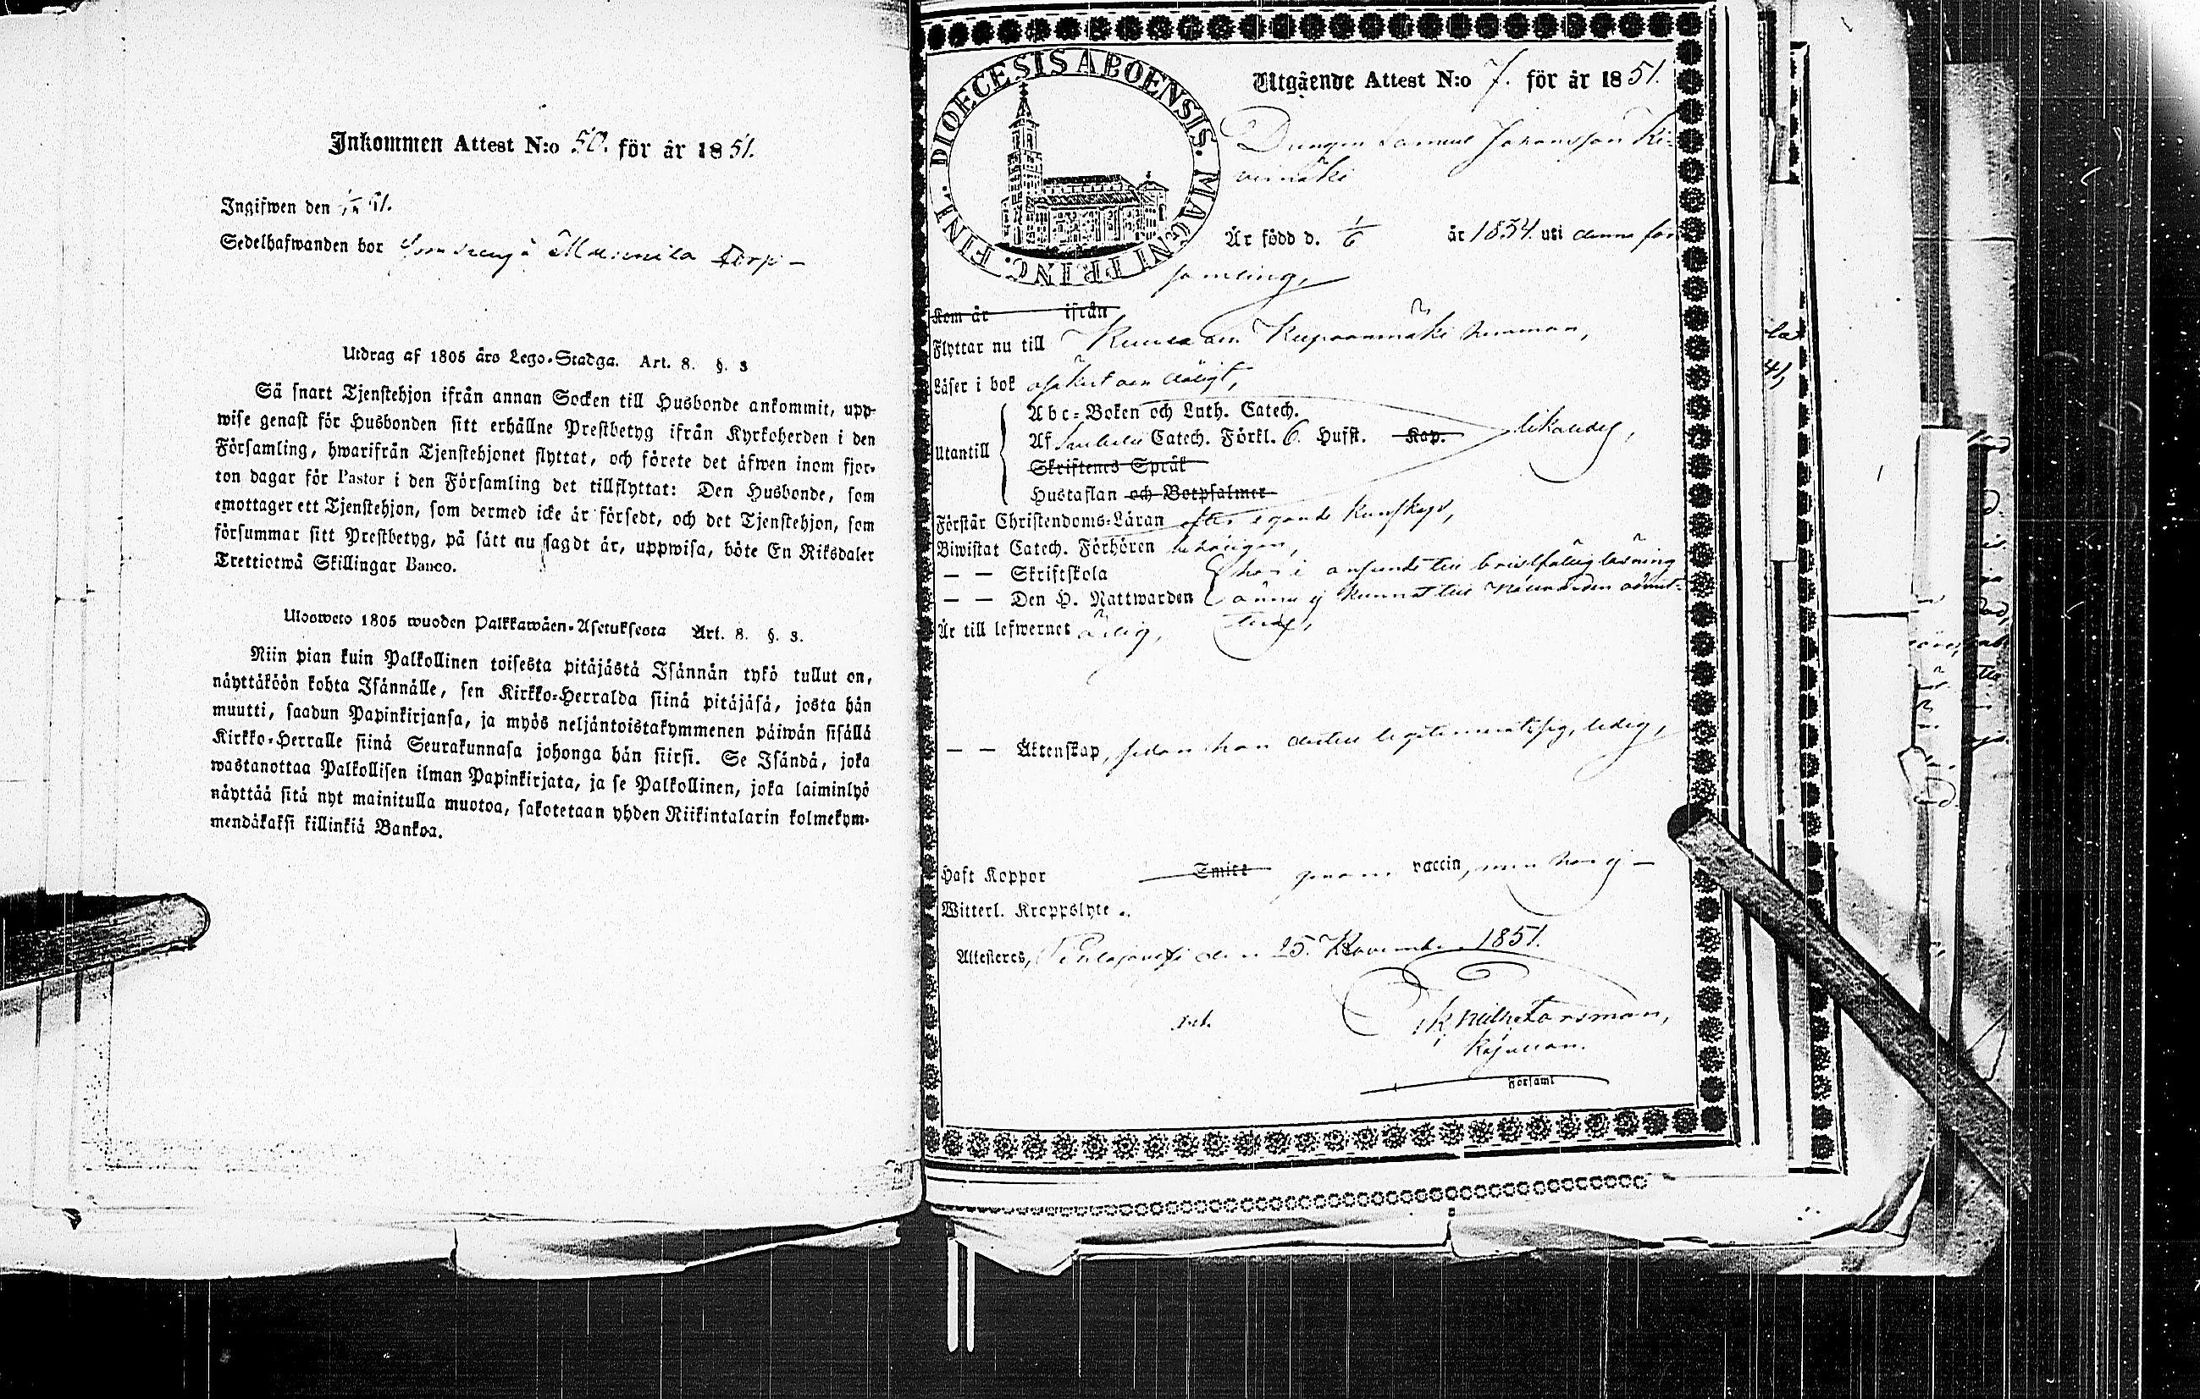 Inkommen Attest N:o 50. för år 1851.
Ingifwen den 51.
Sedelhafwanden bor Torp –
Utdrag af 1805 års Lego-Stadga. Art. 8. §. 3
Så snart Tjenstehjon ifrån annan Socken till Husbonde ankommit, upp-
wise genast för Husbonden sitt erhållne Prestbetyg ifrån Kyrkoherden i den
Församling, hwarifrån Tjenstehjonet flyttat, och förete det äfwen inom fjor-
ton dagar för Pastor i den Församling det tillflyttat: Den Husbonde, som
emottager ett Tjenstehjon, som dermed icke är försedt, och det Tjenstehjon, som
försummar sitt Prestbetyg, på sätt nu sagdt är, uppwisa, böte En Riksdaler
Trettiotwå Skillingar Banco.
Ulosweto 1805 wuoden Palkkawäen-Asetuksesta Art. 8. §. 3.
Niin pian kuin Palkollinen toisesta pitäjästä Isännän tykö tullut on,
näyttäköön kohta Isännälle, sen Kirkko-Herralda siinä pitäjäsä, josta hän
muutti, saadun Papinkirjansa, ja myös neljäntoistakymmenen päiwän sisällä
Kirkko-Herralle siinä Seurakunnasa johonga hän siirsi. Se Isändä, joka
wastanottaa Palkollisen ilman Papinkirjata, ja se Palkollinen, joka laiminlyö
näyttää sitä nyt mainitulla muotoa, sakotetaan yhden Riikintalarin kolmekym-
mendäkaksi killinkiä Bankoa.
FINL. DIOECESIS ABOENSIS. MAGNI PRINC.
Utgående Attest N:o 7. för år 1851.
Drengen Samuel Johansson Ki-
vimäki
Är född d. 1/6 år 1834. uti denna för
samling,
Kom år ifrån
Flyttar nu till
Läser i bok
Abc-Boken och Luth. Catech.
Utantill Af Catech. Förkl. 6. Hufst. Kap. likaledes,
Skriftenes Språk
Hustaflan och Botpsalmer
Förstår Christendoms-Läran efter egande kunskap,
Biwistat Catech. Förhören
— — Skriftskola har i anseende till bristfällig läsning
— — Den H. Nattwarden ännu ej kunnat till Nattvarden admit-
Är till lefwernet ärlig, teras,
— — Äktenskap, sedan han ledig,
Haft Koppor Smitt genom vaccin, men har ej —
Witterl. Kroppslyte.
Attesteres, den 25. November 1851.
Församl